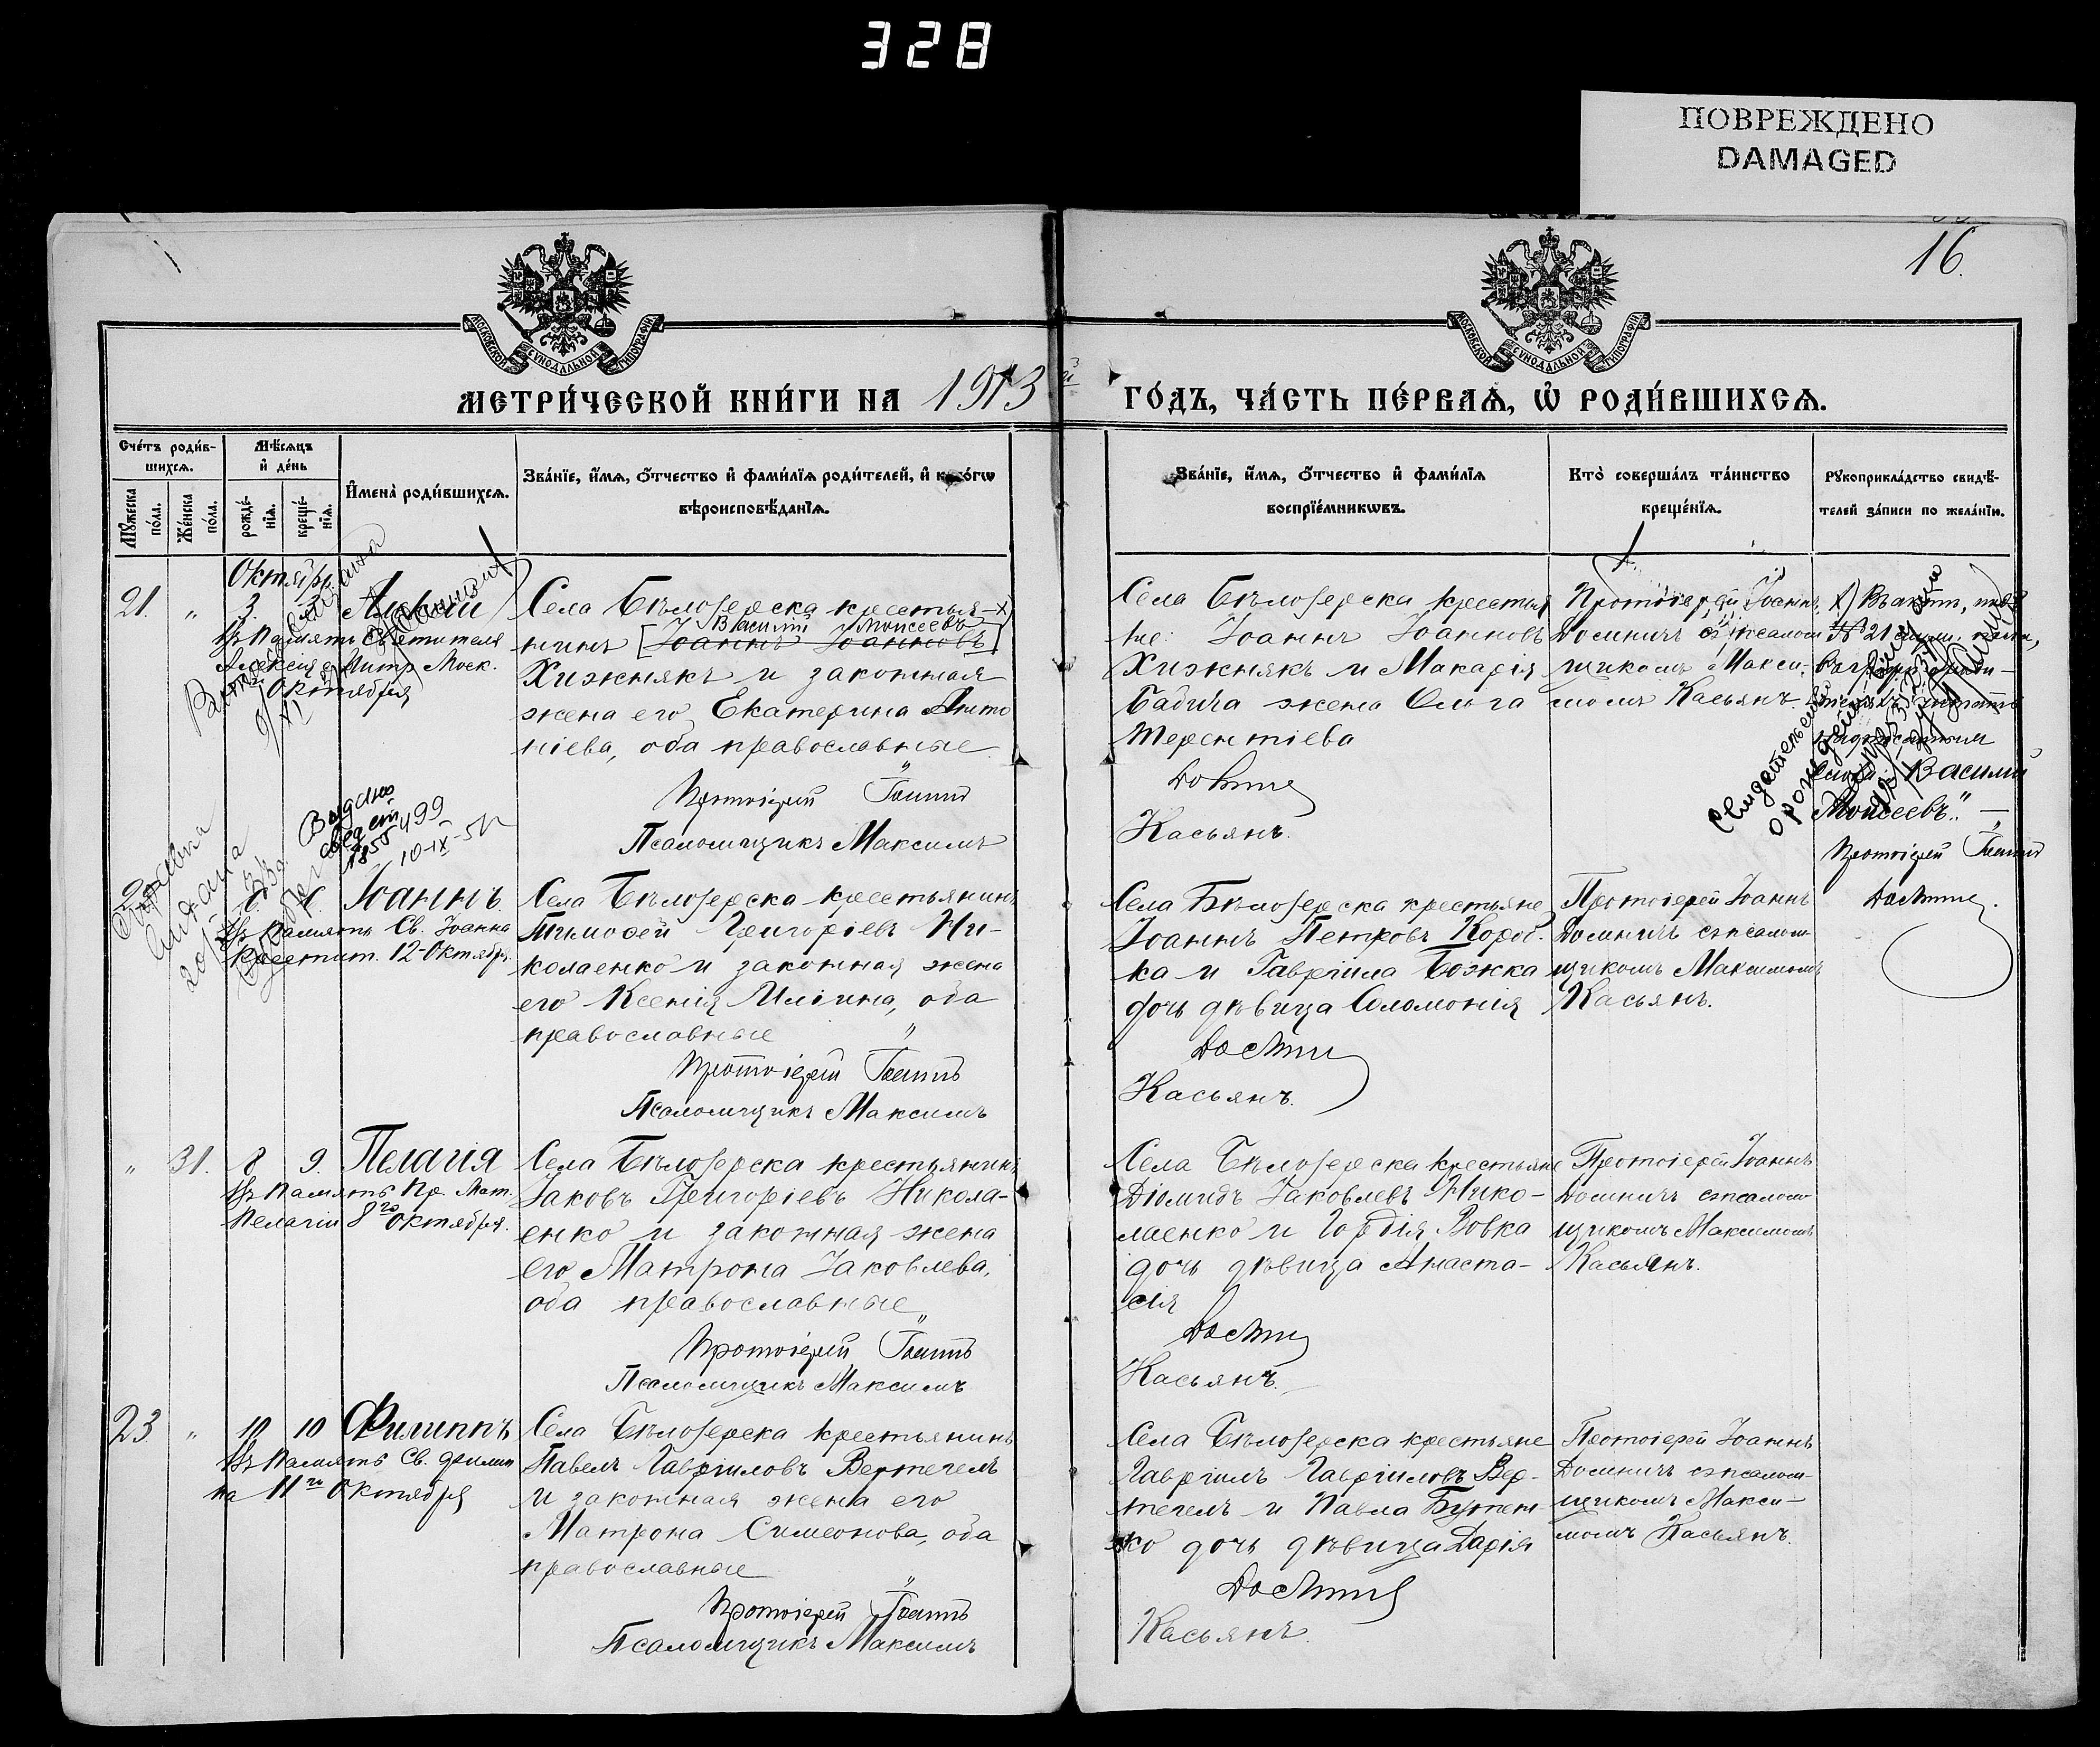 328
ПОВРЕЖДЕНО
DAMAGED
16.
МОСКОВСКОЙ СѴНОДАЛЬНОЙ ТИПОГРАФІИ
МОСКОВСКОЙ СѴНОДАЛЬНОЙ ТИПОГРАФІИ
МЕТРИ́ЧЕСКОЙ КНИ́ГИ НА 1913 ГО́ДЪ, ЧА́СТЬ ПЕ́РВАѦ, Ѡ҆ РОДИ́ВШИХСѦ.
Сче́тъ роди́в-
шихсѧ.
Мѣ́сѧцъ
и҆ де́нь
Мꙋ́жеска по́ла.
Же́нска по́ла.
рожде́-
нїѧ.
креще́-
нїѧ.
И҆мена̀ роди́вшихсѧ.
Зва́нїе, и҆́мѧ, ѻ҆́тчество и҆ фами́лїѧ роди́телей, и҆ како́гѡ
вѣроисповѣ́данїѧ.
Зва́нїе, и҆́мѧ, ѻ҆́тчество и҆ фами́лїѧ
воспрїе́мникѡвъ.
Кто̀ соверша́лъ та́инство
креще́нїѧ.
Рꙋкоприкла́дство свидѣ́-
телей за́писи по жела́нїю.
Октябрь
21. " 3.
Въ память Святителя
Алексія Митр. Моск.
5 Октября
Села Бѣлозерска крестья- х)
Василій Моисеевъ
нинъ [Іоаннъ Іоанновъ]
Хижнякъ и законная
жена его Екатерина Анто
ніева, оба православные
Протоіерей Іоаннъ
Псаломщикъ Максимъ
Села Бѣлозерска крестья
не: Іоаннъ Іоанновъ
Хижнякъ и Макарія
Бабича жена Ольга
Терентіева
Касьянъ.
Протоіерей Іоаннъ
Долиничъ съ псалом
щикомъ Макси-
момъ Касьянъ.
х) Въ актѣ, подъ
№ 21
надписаннымъ
Василій
Моисеевъ". —
Протоіерей Іоаннъ
Свидетельство
Выдано
свидет
1850499
10-IX-51
6. Іоаннъ.
Въ память Св. Іоанна
12 Октября.
Села Бѣлозерска крестьянинъ
Тимофей Григоріевъ Ни-
колаенко и законная жена
его Ксенія Иліина, оба
православные
Протоіерей Іоаннъ
Псаломщикъ Максимъ
Села Бѣлозерска крестьяне
Іоаннъ Петровъ Короб-
ка и Гавріила Божка
дочь дѣвица Соломонія
Касьянъ.
Протоіерей Іоаннъ
Долиничъ съ псалом
щикомъ Максимомъ
Касьянъ.
" 31. 8 9. Пелагія
Въ память Пр. Мат.
Пелагіи 8го Октября.
Села Бѣлозерска крестьянинъ
Іаковъ Григоріевъ Никола-
енко и законная жена
его Матрона Іаковлева,
оба православные
Протоіерей Іоаннъ
Псаломщикъ Максимъ
Села Бѣлозерска крестьяне
Діомидъ Іаковлевъ Нико-
лаенко и Гордія Вовка
дочь дѣвица Анаста-
сія
Касьянъ.
Протоіерей Іоаннъ
Долиничъ съ псалом
щикомъ Максимомъ
Касьянъ.
23 " 10 10 Филиппъ
Въ память Св. Филип
па 11го Октября
Села Бѣлозерска крестьянинъ
Павелъ Гавріиловъ Вертегелъ
и законная жена его
Матрона Симеонова, оба
православные
Протоіерей Іоаннъ
Псаломщикъ Максимъ
Села Бѣлозерска крестьяне
Гавріилъ Гавріиловъ Вер-
тегелъ и Павла Бутен
ко дочь дѣвица Дарія
Касьянъ.
Протоіерей Іоаннъ
Долиничъ съ псалом-
щикомъ Макси-
момъ Касьянъ.